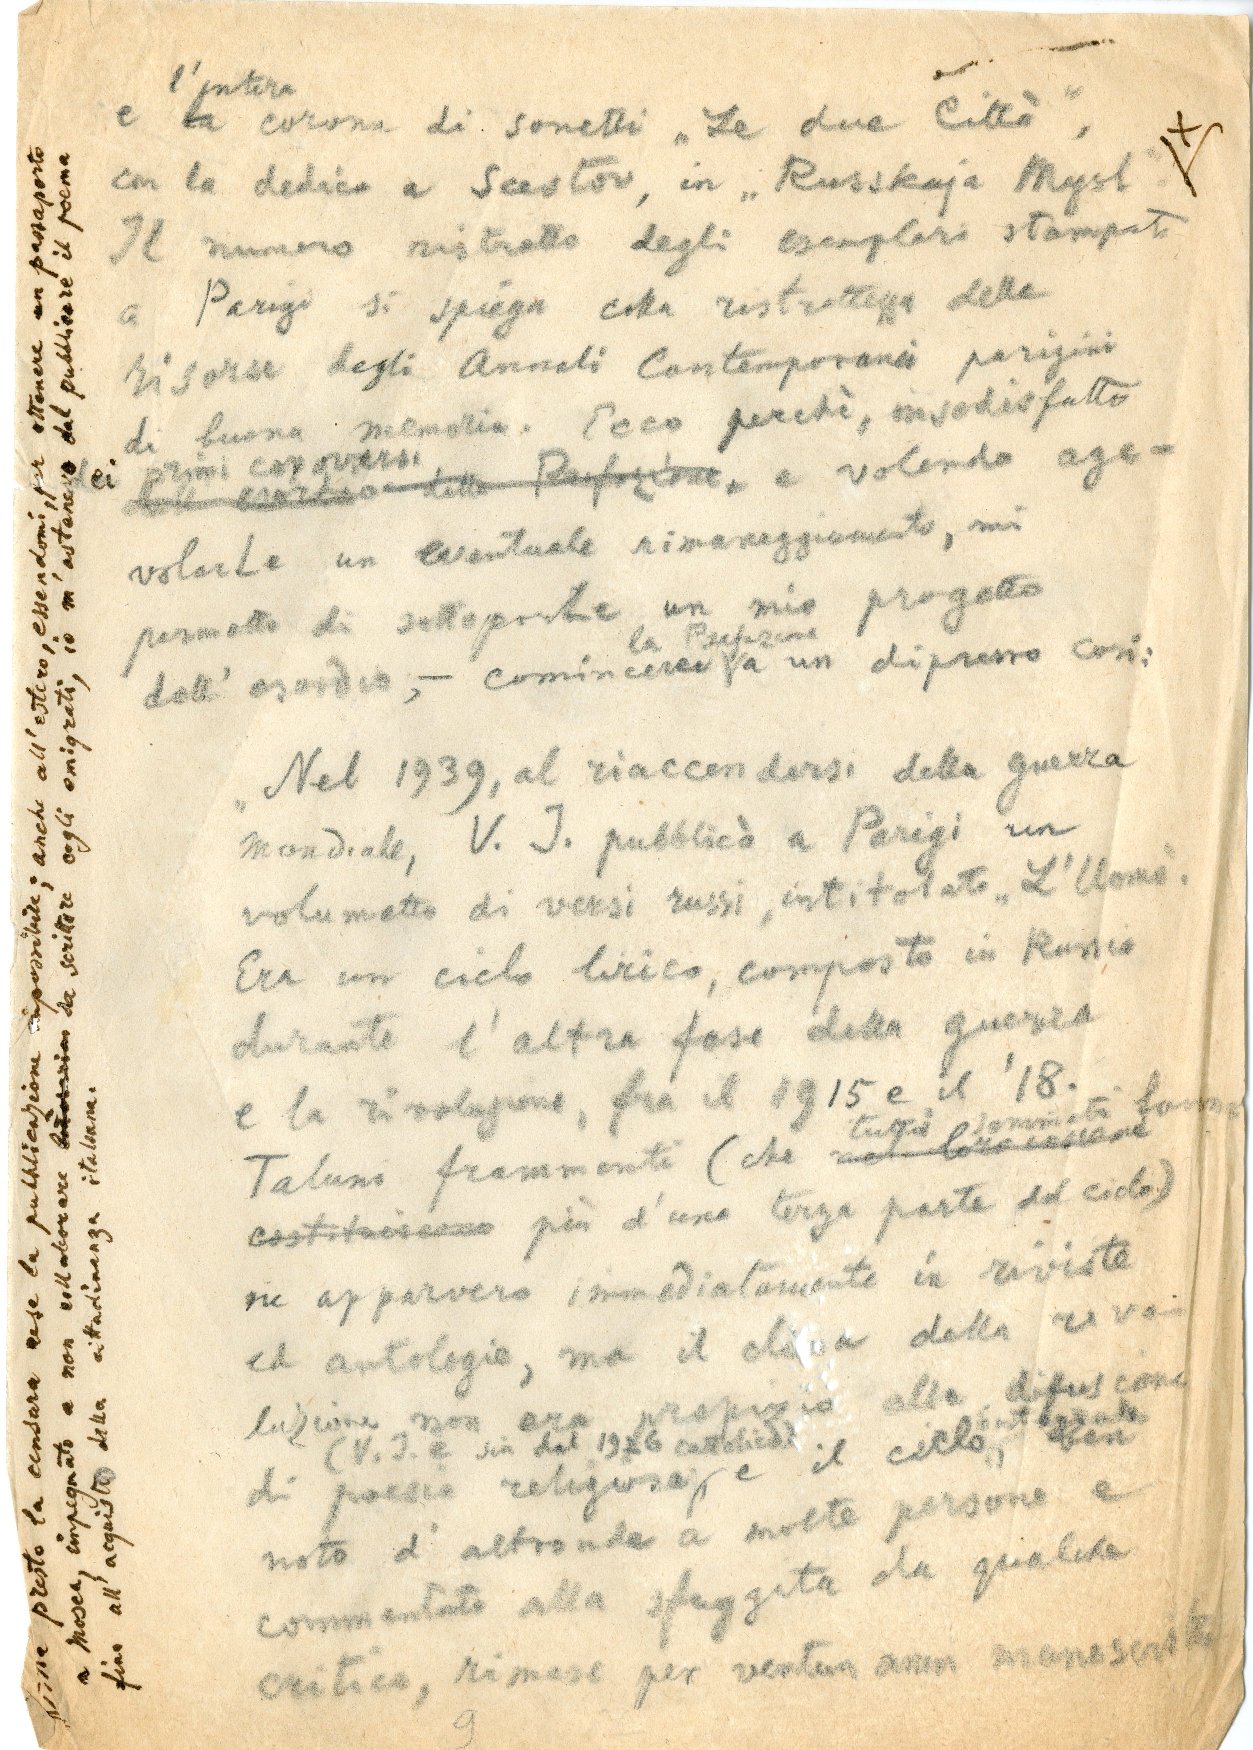 l'intera
e la corona di sonetti „Le due Città",
con la dedica a Scestov, in „Russkaja Mysl".
Il numero ristretto degli esemplari stampati
a Parigi si spiega colla ristrettezza delle
risorse degli Annali Contemporanei parigini
di buona memoria. Ecco perchè, insodisfatto
dei primi capoversi
dell'esordio della Prefazione, e volendo age-
volarLe un eventuale rimaneggiamento, mi
permetto di sottoporLe un mio progetto
la Prefazione
dell'esordio; – comincerei a un dipresso così:
„Nel 1939, al riaccendersi della guerra
mondiale, V. I. pubblicò a Parigi un
volumetto di versi russi, intitolato „L'Uomo".
Era un ciclo lirico, composto in Russia
durante l'altra fase della guerra
e la rivoluzione, fra il 1915 e il '18.
tutti sommati fanno
Taluni frammenti (che
costituiscono più d'una terza parte del ciclo)
ne apparvero immediatamente in riviste
ed antologie, ma il clima della rivo-
luzione non era propizio alla difusione
(V. I. è sin dal 1926 cattolico)
di poesia religiosa, e il ciclo, ben
noto d'altronde a molte persone e
commentato alla sfuggita da qualche
critico, rimase per ventun anni manoscritto
9
presto la censura rese la pubblicazione impossibile; anche all'estero, essendomi, per ottenere un passaporto
a Mosca, impegnato a non collaborare da scrittore cogli emigrati, io m'astenevo dal pubblicare il poema
fino all'acquisto della cittadinanza italiana.